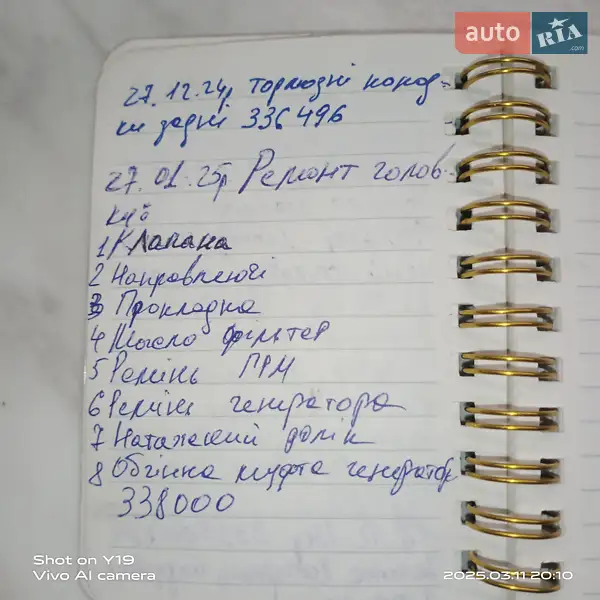 auto RIA .com
27.12.24р Тормозні колод-
ки задні 336496
27.01.25р Ремонт голов-
ки
1 Клапана
2 Направляючі
3 Прокладка
4 Масло фільтер
5 Ремінь ГРМ
6 Ремінь генератора
7 Натяжний ролік
8 Обгінна муфта генератор
338000
Shot on Y19
Vivo AI camera
2025.03.11 20:10